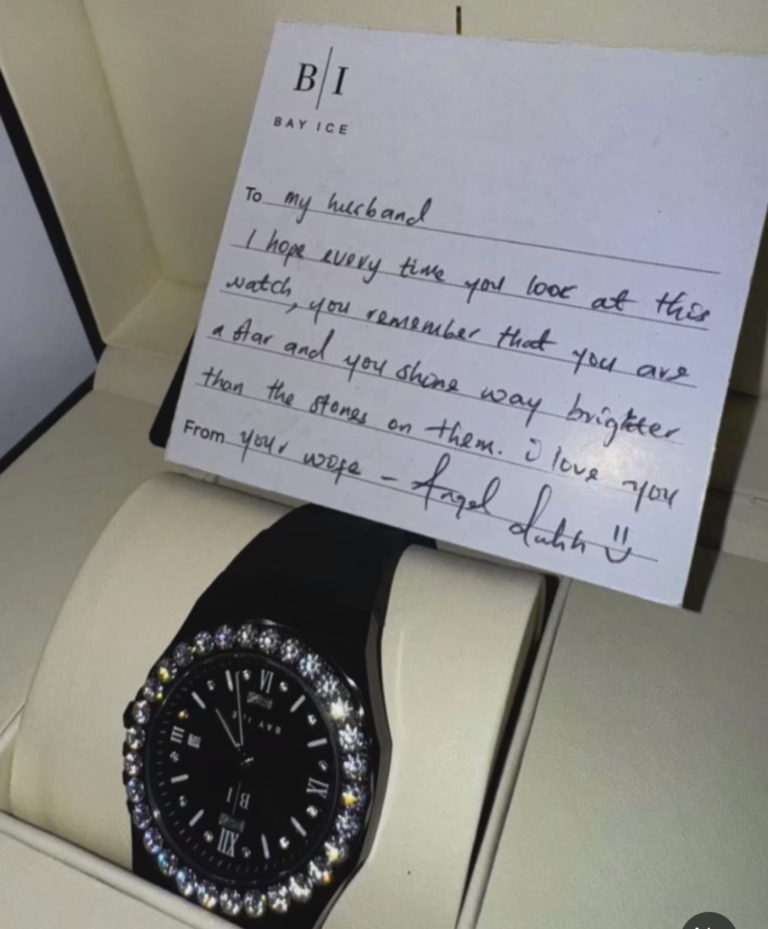 B|I
BAY ICE
To my husband
I hope every time you look at this
watch, you remember that you are
a star and you shine way brighter
than the stones on them. i love you
From your wife - Angel
VI
BAY ICE
III
IX
B|I
XII